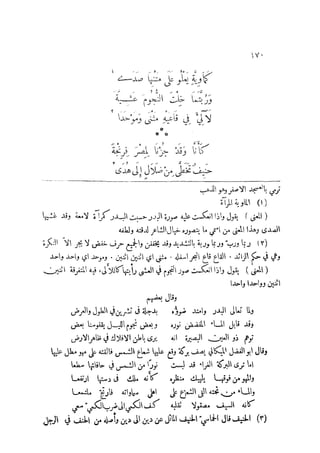 ١٧٠
كماوية يعلو على متنها صدى ١
وربتما خلت النجوم عشية
لآلئ في قاعيه مثنى وموحدا ٢
***
كأنا وقد جزنا لمصر فرنجة
حنيف تخطى من ضلال إلى هدى ٣
ترمي بالعسجد الاصفر وهو الذهب
(١) الماوية المرآة
(المعنى) يقول واذا انعكست عليه صورة البدر حسبت البدر كرآة لامعة وقد غشيها
الصدى وهذا المعنى من اسمى ما يتصوره خيال الشاعر لدقته ولطفه
(٢) ربما وربت وربتا بالتشديد وقد يخففن والجميع حرف خفض لا يجر الا النكرة
وهي في حكم الزائد. القاع قاع البحر اسفله. مثنى اي اثنين اثنين. وموحد اي واحد واحد
(المعنى) يقول واذا انعكست صور النجوم في العشي رأيتها كاللآلئ فيه المتفرقة اثنين
وواحدا واحدا
وقال بعضهم
ولما تعالى البدر وامتد ضوؤه بدجلة في تشرين في الطول والعرض
وقد قابل الماء المفضض نوره وبعض نجوم الليل يقفو سنا بعض
توهم ذو العين البصيرة انه يرى باطن الافلاك في ظاهر الارض
وقال ابو الفضل الميكالي يصف بركة وقع عليها شعاع الشمس فالقته على مهو مطل عليها
اما ترى البركة الغراء قد لبست نورا من الشمس في حافاتها سطعا
والمهو من فوقها يلهيك منظره كأنه ملك في دستها ارتفعا
والماء من تحته القى الشعاع على اعلى سماواته فارتج ملتمعا
كانه السيف مصقولا تقلبه كف الكمي الى ضرب الكمي سعى
(٣) الحنيف قال الخماسي الحنيف المائل عن دين الى دين وأصله من الحنف في الرجل